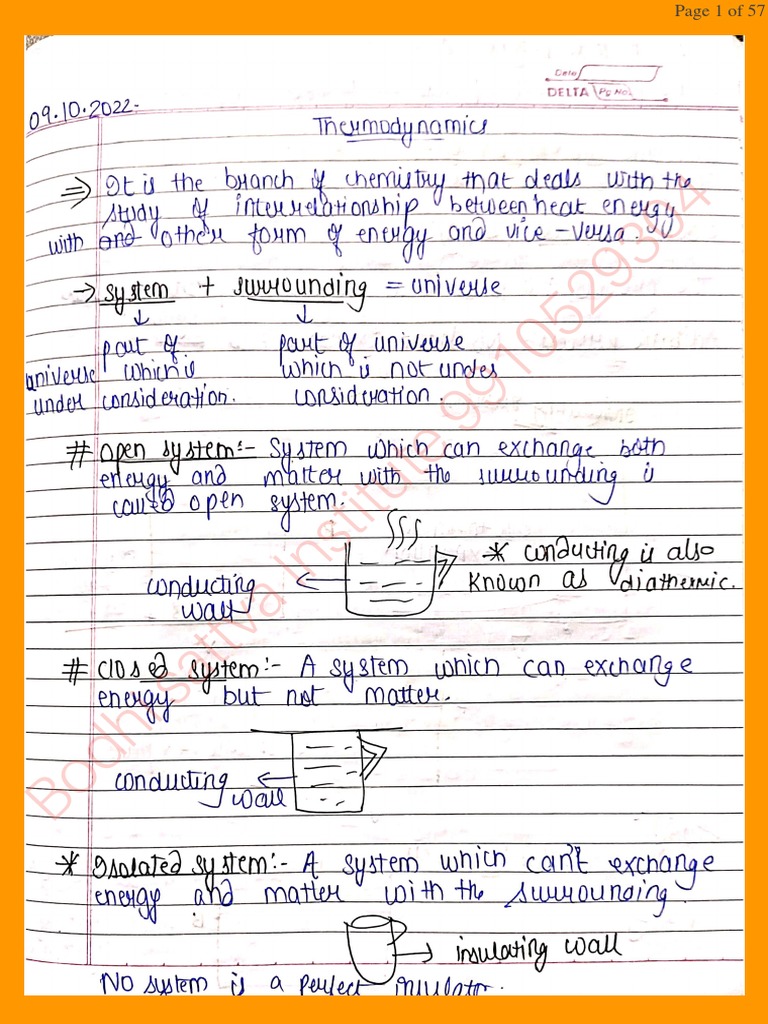 Page 1 of 57
Date
DELTA Pg No.
09.10.2022-
Thermodynamics
⇒ It is the branch of chemistry that deals with the
study of interrelationship between heat energy
with and other form of energy and vice-versa.
→ system + surrounding = universe
↓ ↓
part of part of universe
universe which is which is not under
under consideration. consideration.
# Open system:- System which can exchange both
energy and matter with the surrounding is
called open system.
* conducting is also
known as diathermic.
conducting
wall
# Closed system:- A system which can exchange
energy but not matter.
conducting
wall
* Isolated system:- A system which can't exchange
energy and matter with the surrounding.
→ insulating wall
No system is a perfect insulator.
Bodhi Sattva Institute 9910529394